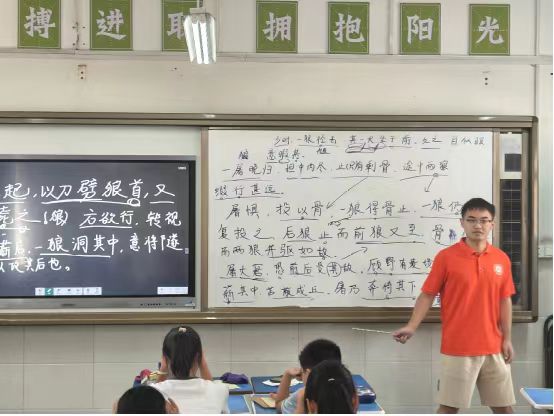 搏 进 取 拥 抱 阳 光
起,以刀劈狼首,又
毙之(偶)方欲行,转视
后,一狼洞其中,意将隧
以攻其后也。
少时,一狼径去,其一犬坐于前,久之,目似瞑
意暇甚
一屠晚归,担中肉尽,止有剩骨,途中两狼
缀行甚远。
屠惧,投以骨,一狼得骨止,一狼仍
复投之,后狼止而前狼又至,骨
而两狼并驱如故。
屠大窘,恐前后受敌,顾野有麦
薪其中,苫蔽成丘,屠乃奔倚其下